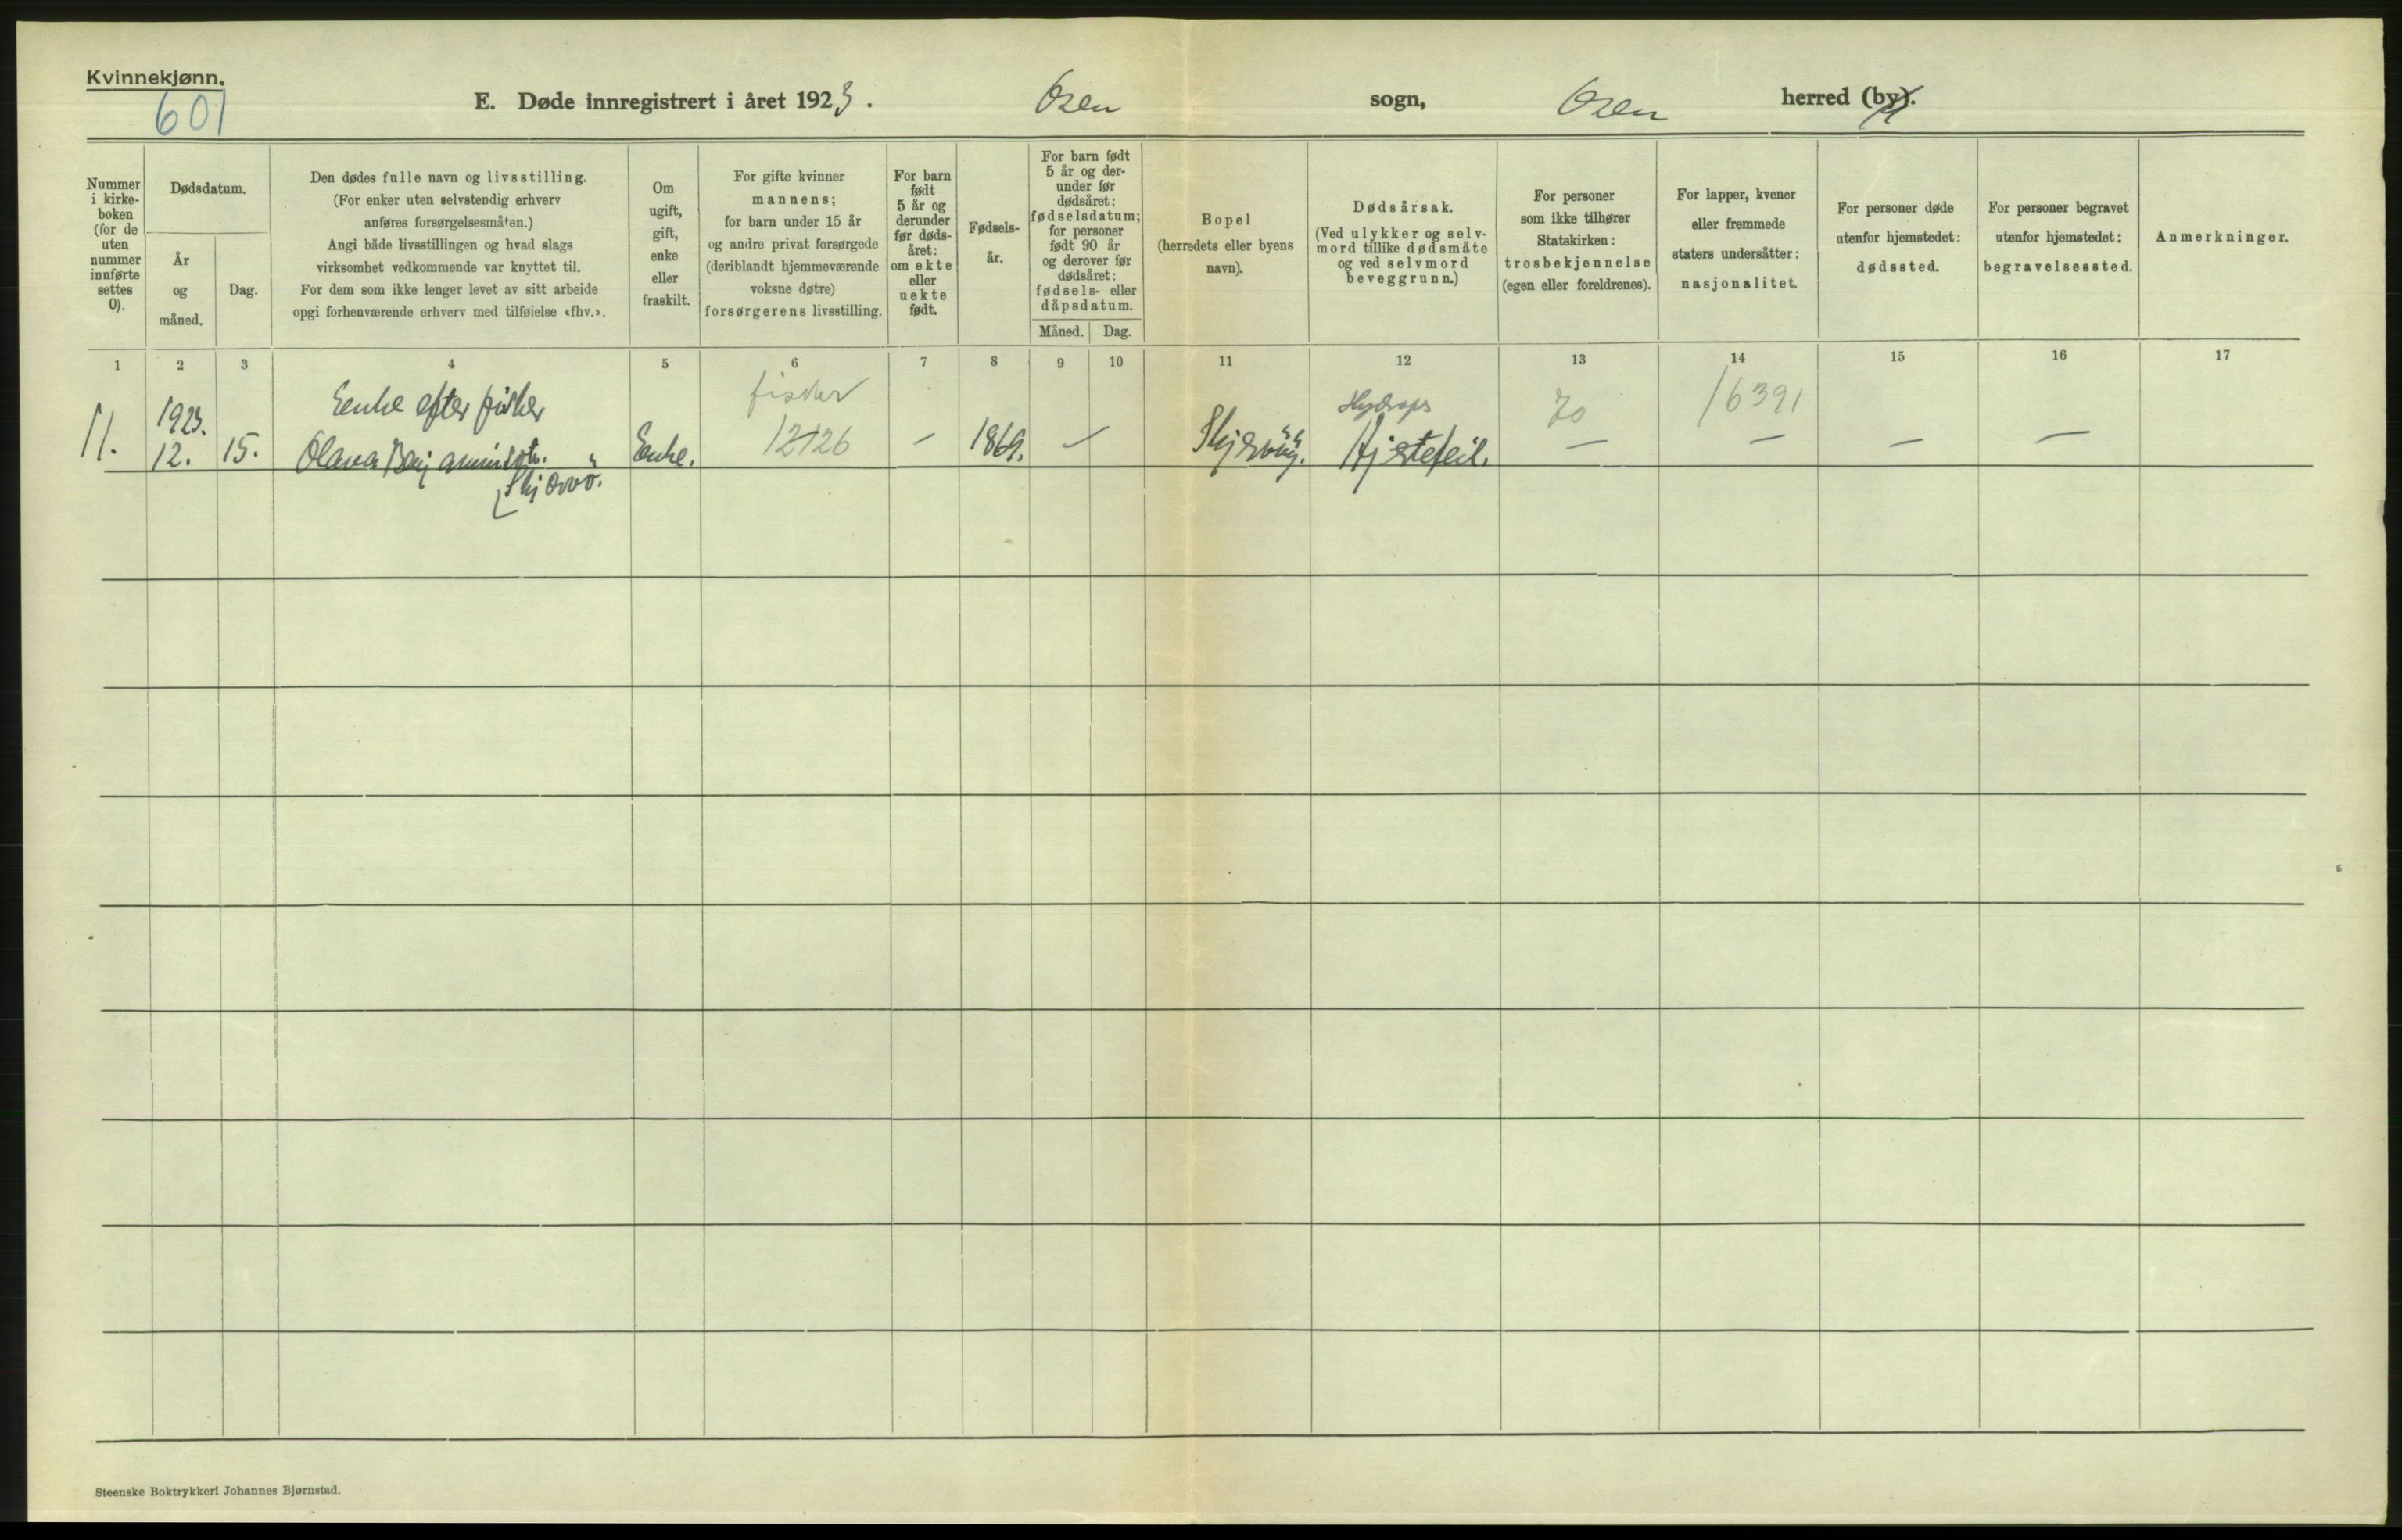 Kvinnekjønn.
601
E. Døde innregistrert i året 1923. Osen sogn, Osen herred (by).
Nummer
i kirke-
boken
(for de
uten
nummer
innførte
settes
0).
Dødsdatum.
År
og
måned.
Dag.
Den dødes fulle navn og livsstilling.
(For enker uten selvstendig erhverv
anføres forsørgelsesmåten.)
Angi både livsstillingen og hvad slags
virksomhet vedkommende var knyttet til.
For dem som ikke lenger levet av sitt arbeide
opgi forhenværende erhverv med tilføielse «fhv.».
Om
ugift,
gift,
enke
eller
fraskilt.
For gifte kvinner
mannens;
for barn under 15 år
og andre privat forsørgede
(deriblandt hjemmeværende
voksne døtre)
forsørgerens livsstilling.
For barn
født
5 år og
derunder
før døds-
året:
om ekte
eller
uekte
født.
Fødsels-
år.
For barn født
5 år og der-
under før
dødsåret:
fødselsdatum;
for personer
født 90 år
og derover før
dødsåret:
fødsels- eller
dåpsdatum.
Måned. Dag.
Bopel
(herredets eller byens
navn).
Dødsårsak.
(Ved ulykker og selv-
mord tillike dødsmåte
og ved selvmord
beveggrunn.)
For personer
som ikke tilhører
Statskirken:
trosbekjennelse
(egen eller foreldrenes).
For lapper, kvener
eller fremmede
staters undersåtter:
nasjonalitet.
For personer døde
utenfor hjemstedet:
dødssted.
For personer begravet
utenfor hjemstedet:
begravelsessted.
Anmerkninger.
1 2 3 4 5 6 7 8 9 10 11 12 13 14 15 16 17
Enke efter fisker fisker Hydrops 70 16391
11. 1923. 12. 15. Olava Benjaminsdtr. Enke. 12126 — 1869. — Hjertefeil. — — — —
Steenske Boktrykkeri Johannes Bjørnstad.